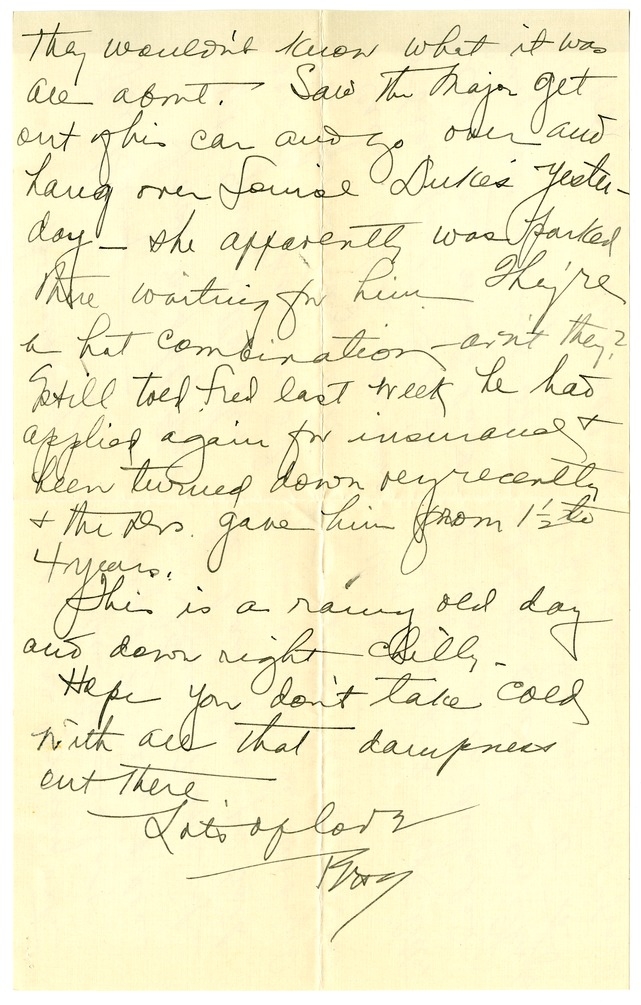 They wouldn't know what it was
all about. Saw the Major get
out of his car and go over and
hang over Louise Duke's yester-
day — she apparently was parked
there waiting for him. They're
a hot combination — ain't they?
Still told Fred last week he had
applied again for insurance &
been turned down very recently
& the Drs. gave him from 1½ to
4 years.
This is a rainy old day
and down right chilly.
Hope you don't take cold
with all that dampness
out there
Lot's of love